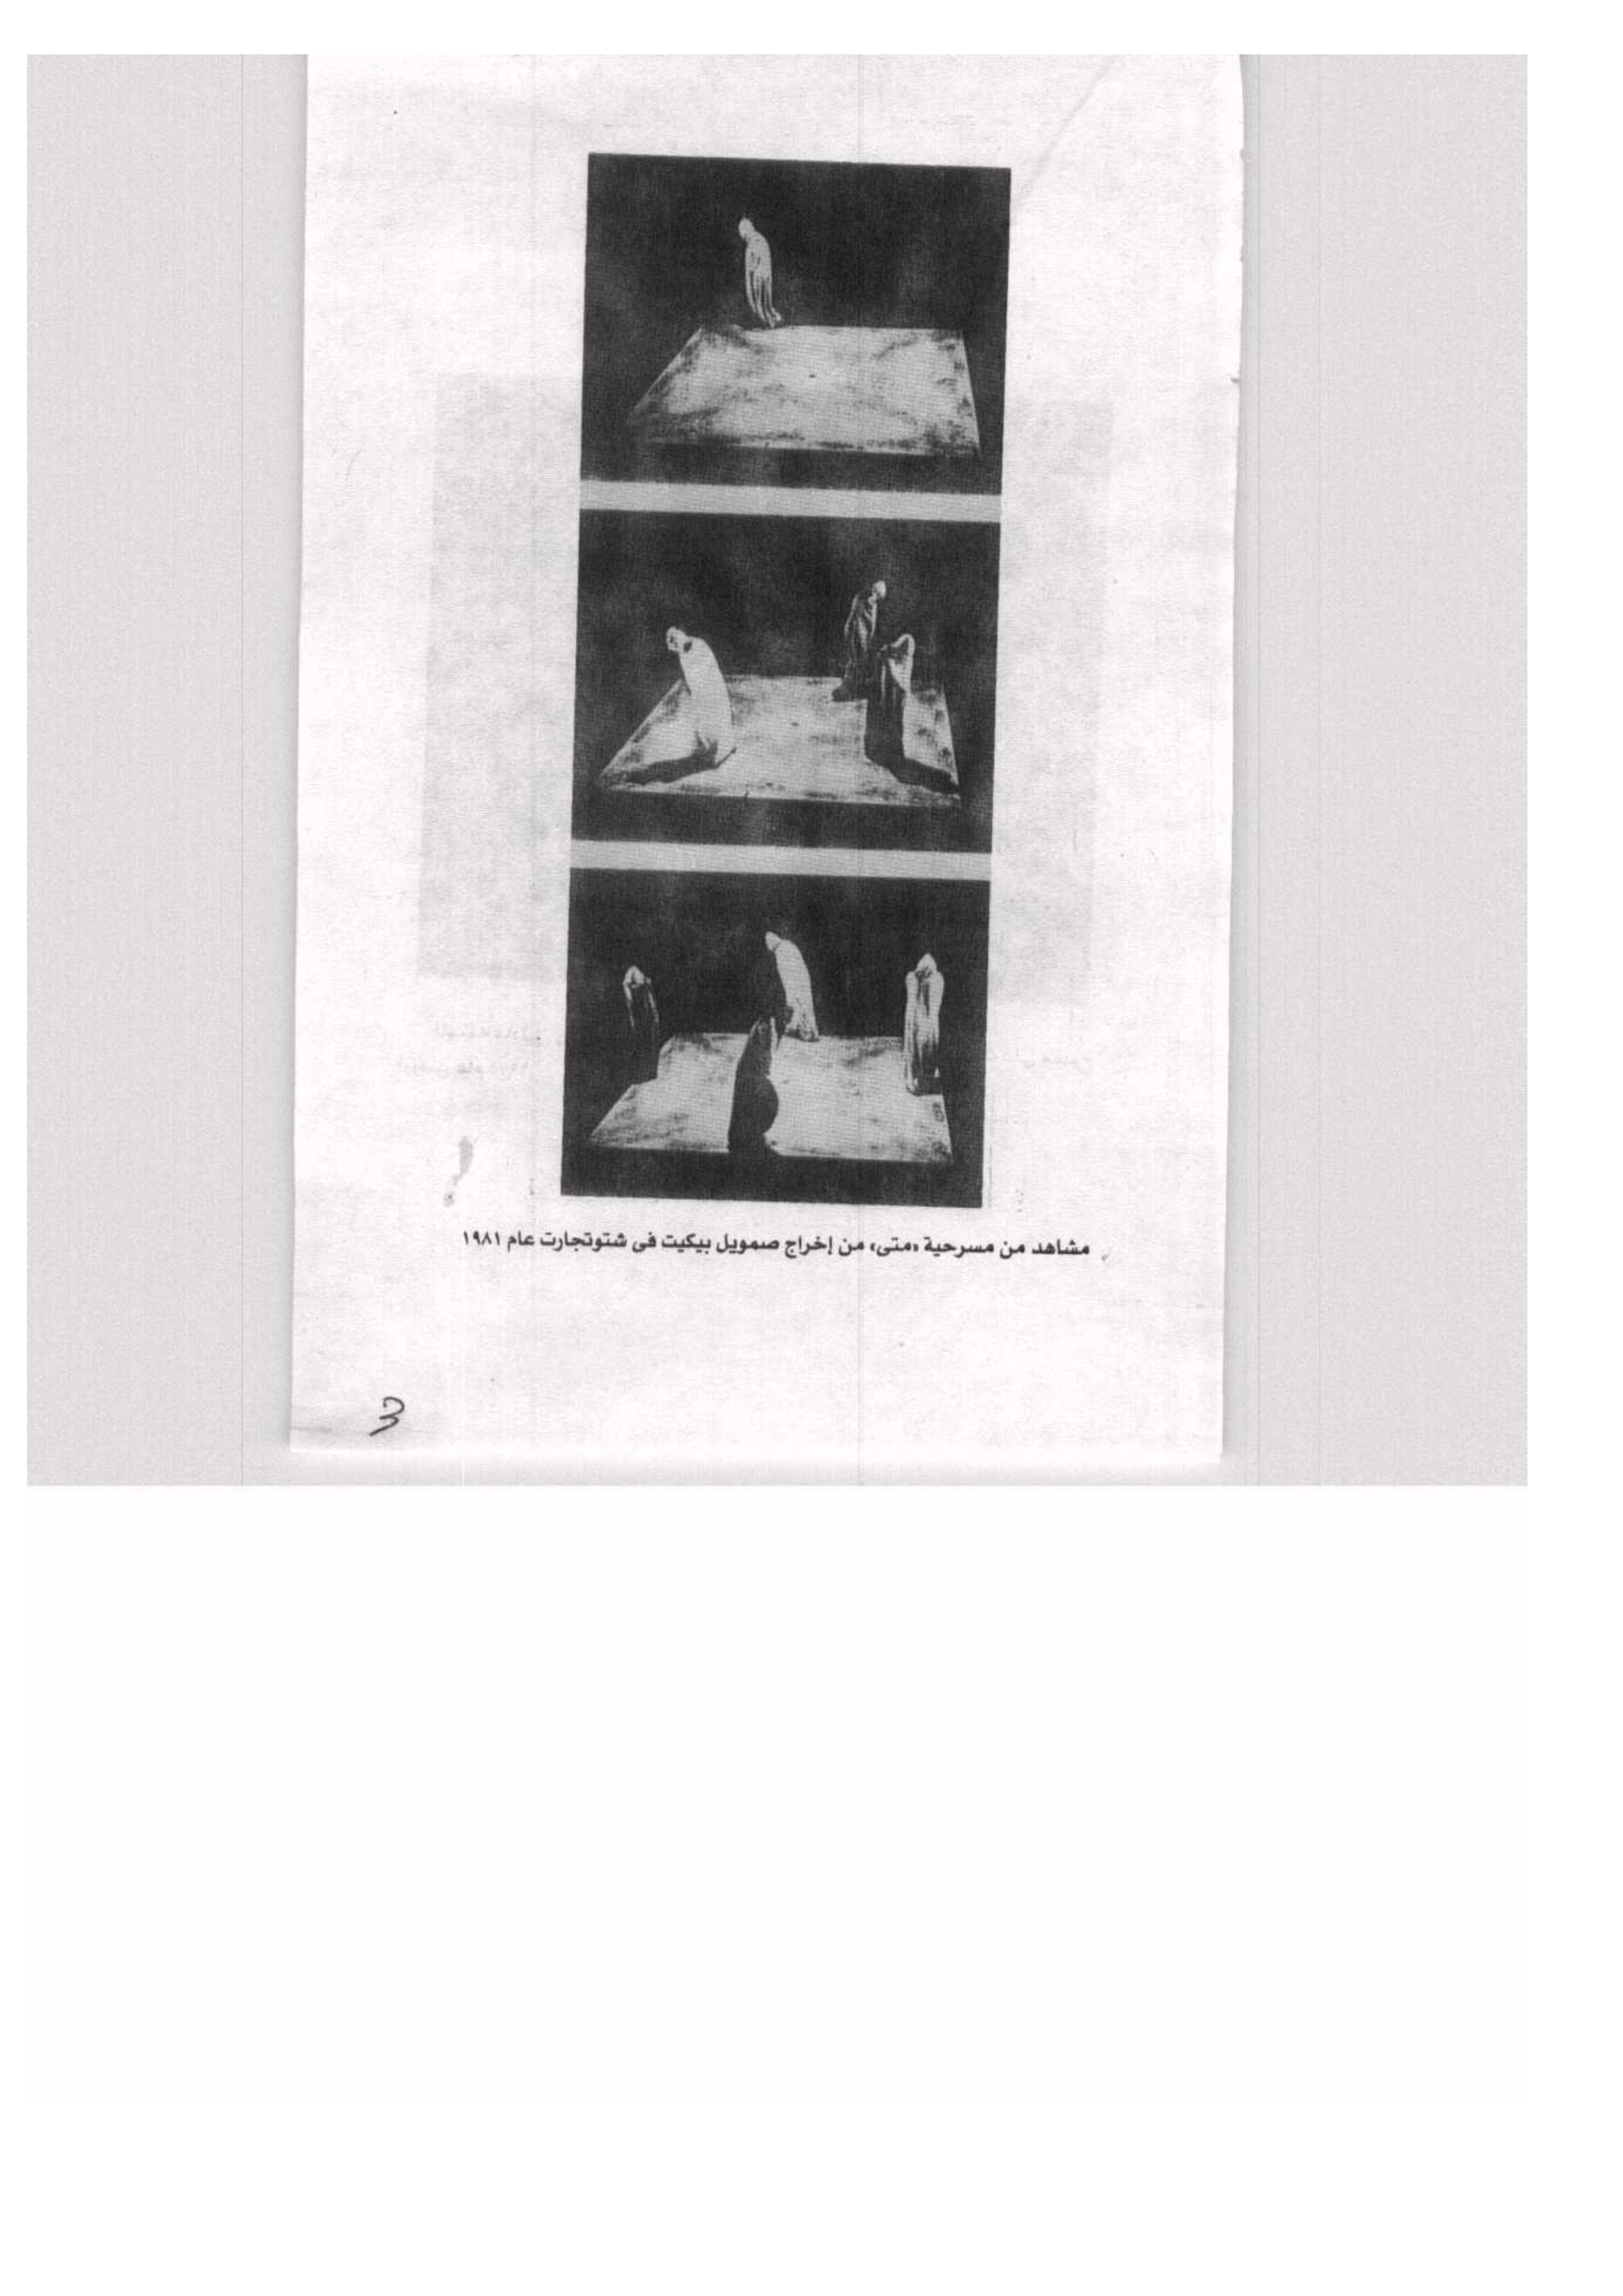 مشاهد من مسرحية «متى» من إخراج صمويل بيكيت فى شتوتجارت عام ١٩٨١